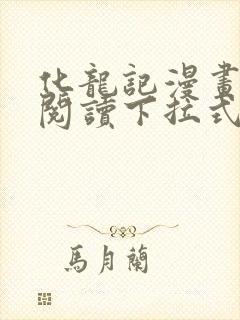 化龍記漫畫
閱讀下拉式
馬月蘭